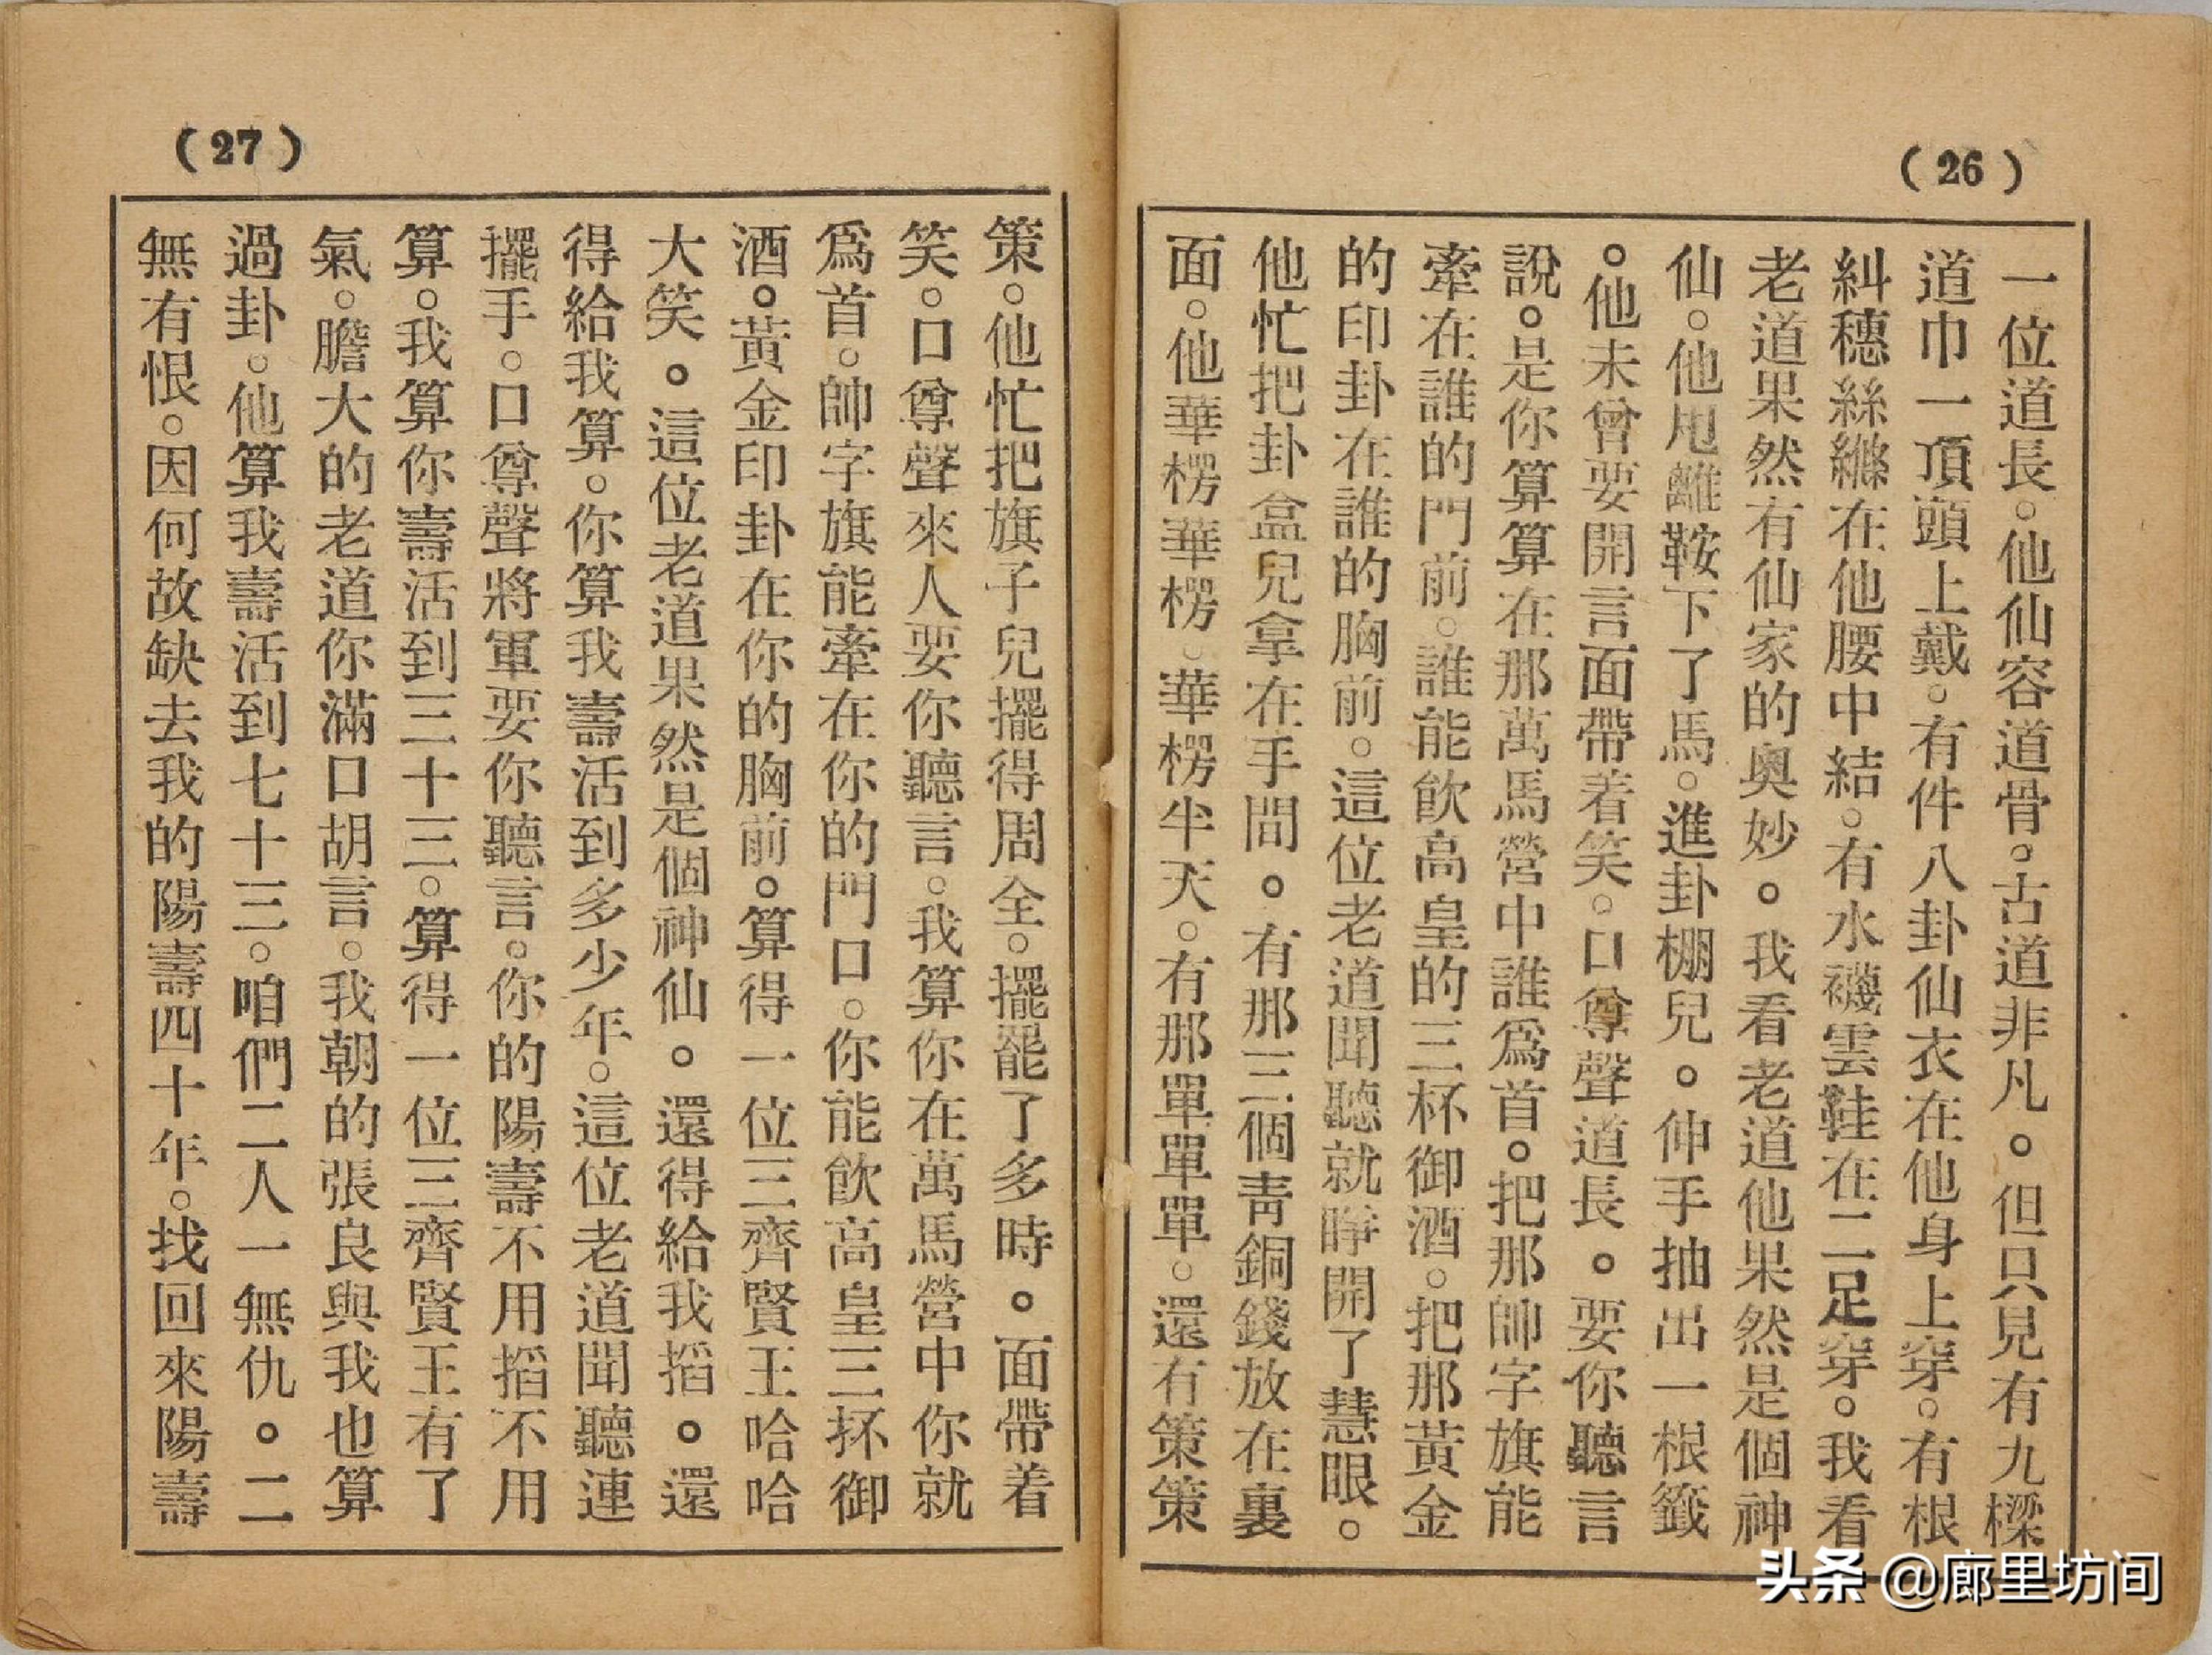 (26)
一位道長。他仙容道骨。古道非凡。但只見有九樑
道巾一頂頭上戴。有件八卦仙衣在他身上穿。有根
糾穗絲縧在他腰中結。有水襪雲鞋在二足穿。我看
老道果然有仙家的奥妙。我看老道他果然是個神
仙。他甩離鞍下了馬。進卦棚兒。伸手抽出一根籤
。他未曾要開言面帶着笑。口尊聲道長。要你聽言
說。是你算算在那萬馬營中誰爲首。把那帥字旗能
牽在誰的門前。誰能飲高皇的三杯御酒。把那黃金
的印卦在誰的胸前。這位老道聞聽就睜開了慧眼。
他忙把卦盒兒拿在手間。有那三個靑銅錢放在裏
面。他華楞華楞。華楞半天。有那單單單。還有策策
(27)
策。他忙把旗子兒擺得周全。擺罷了多時。面帶着
笑。口尊聲來人要你聽言。我算你在萬馬營中你就
爲首。帥字旗能牽在你的門口。你能飲高皇三抔御
酒。黃金印卦在你的胸前。算得一位三齊賢王哈哈
大笑。這位老道果然是個神仙。還得給我搯。還
得給我算。你算我壽活到多少年。這位老道聞聽連
擺手。口尊聲將軍要你聽言。你的陽壽不用搯不用
算。我算你壽活到三十三。算得一位三齊賢王有了
氣。膽大的老道你滿口胡言。我朝的張良與我也算
過卦。他算我壽活到七十三。咱們二人一無仇。二
無有恨。因何故缺去我的陽壽四十年。找回來陽壽
头条 @廊里坊间